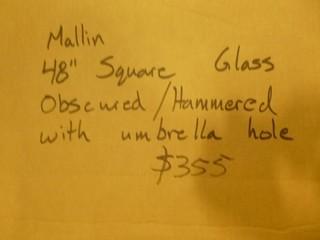 Mallin
48" Square Glass
Obscured / Hammered
with umbrella hole
$355